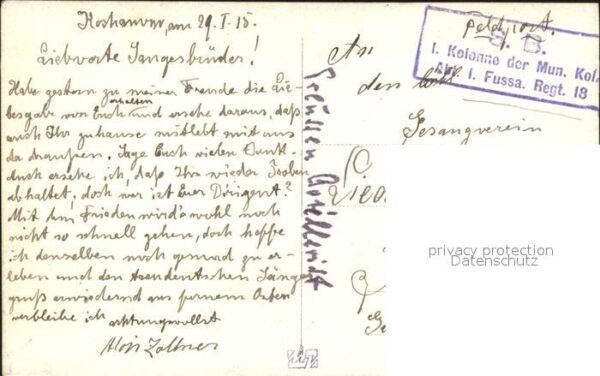 am 29.I.15.
Liebwerte Sangesbrüder!
Habe gestern zu meiner Freude die Lie-
besgabe von Euch erhalten und ersehe daraus, daß
auch Ihr zuhause mitlebt mit uns
da draußen. Sage Euch vielen Dank
ersehe ich, daß Ihr wieder Proben
abhaltet, doch wer ist Euer Dirigent?
Mit dem Frieden wird's wohl noch
nicht so schnell gehen, doch hoffe
ich denselben noch gesund zu er-
leben und den Sänger
gruß erwidernd aus fernem Osten
verbleibe ich achtungsvollst
Alois Zollner
Feldpost.
S. B.
I. Kolonne der Mun. Kol.
Abt. I. Fussa. Regt. 18
An
den
Gesangverein
privacy protection
Datenschutz